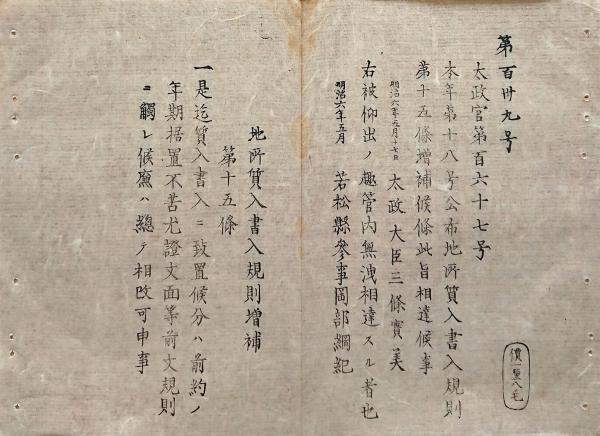 第百卅九号
太政官第百六十七号
本年第十八号公布地所質入書入規則
第十五條増補候條此旨相達候事
明治六年五月十七日 太政大臣三條實美
右被仰出ノ趣管内無洩相達スル者也
明治六年五月 若松縣參事岡部綱紀
價一厘八毛
地所質入書入規則増補
第十五條
一是迄質入書入ニ致置候分ハ前約ノ
年期据置不苦尤證文面等前文規則
ニ觸レ候廉ハ總テ相改可申事